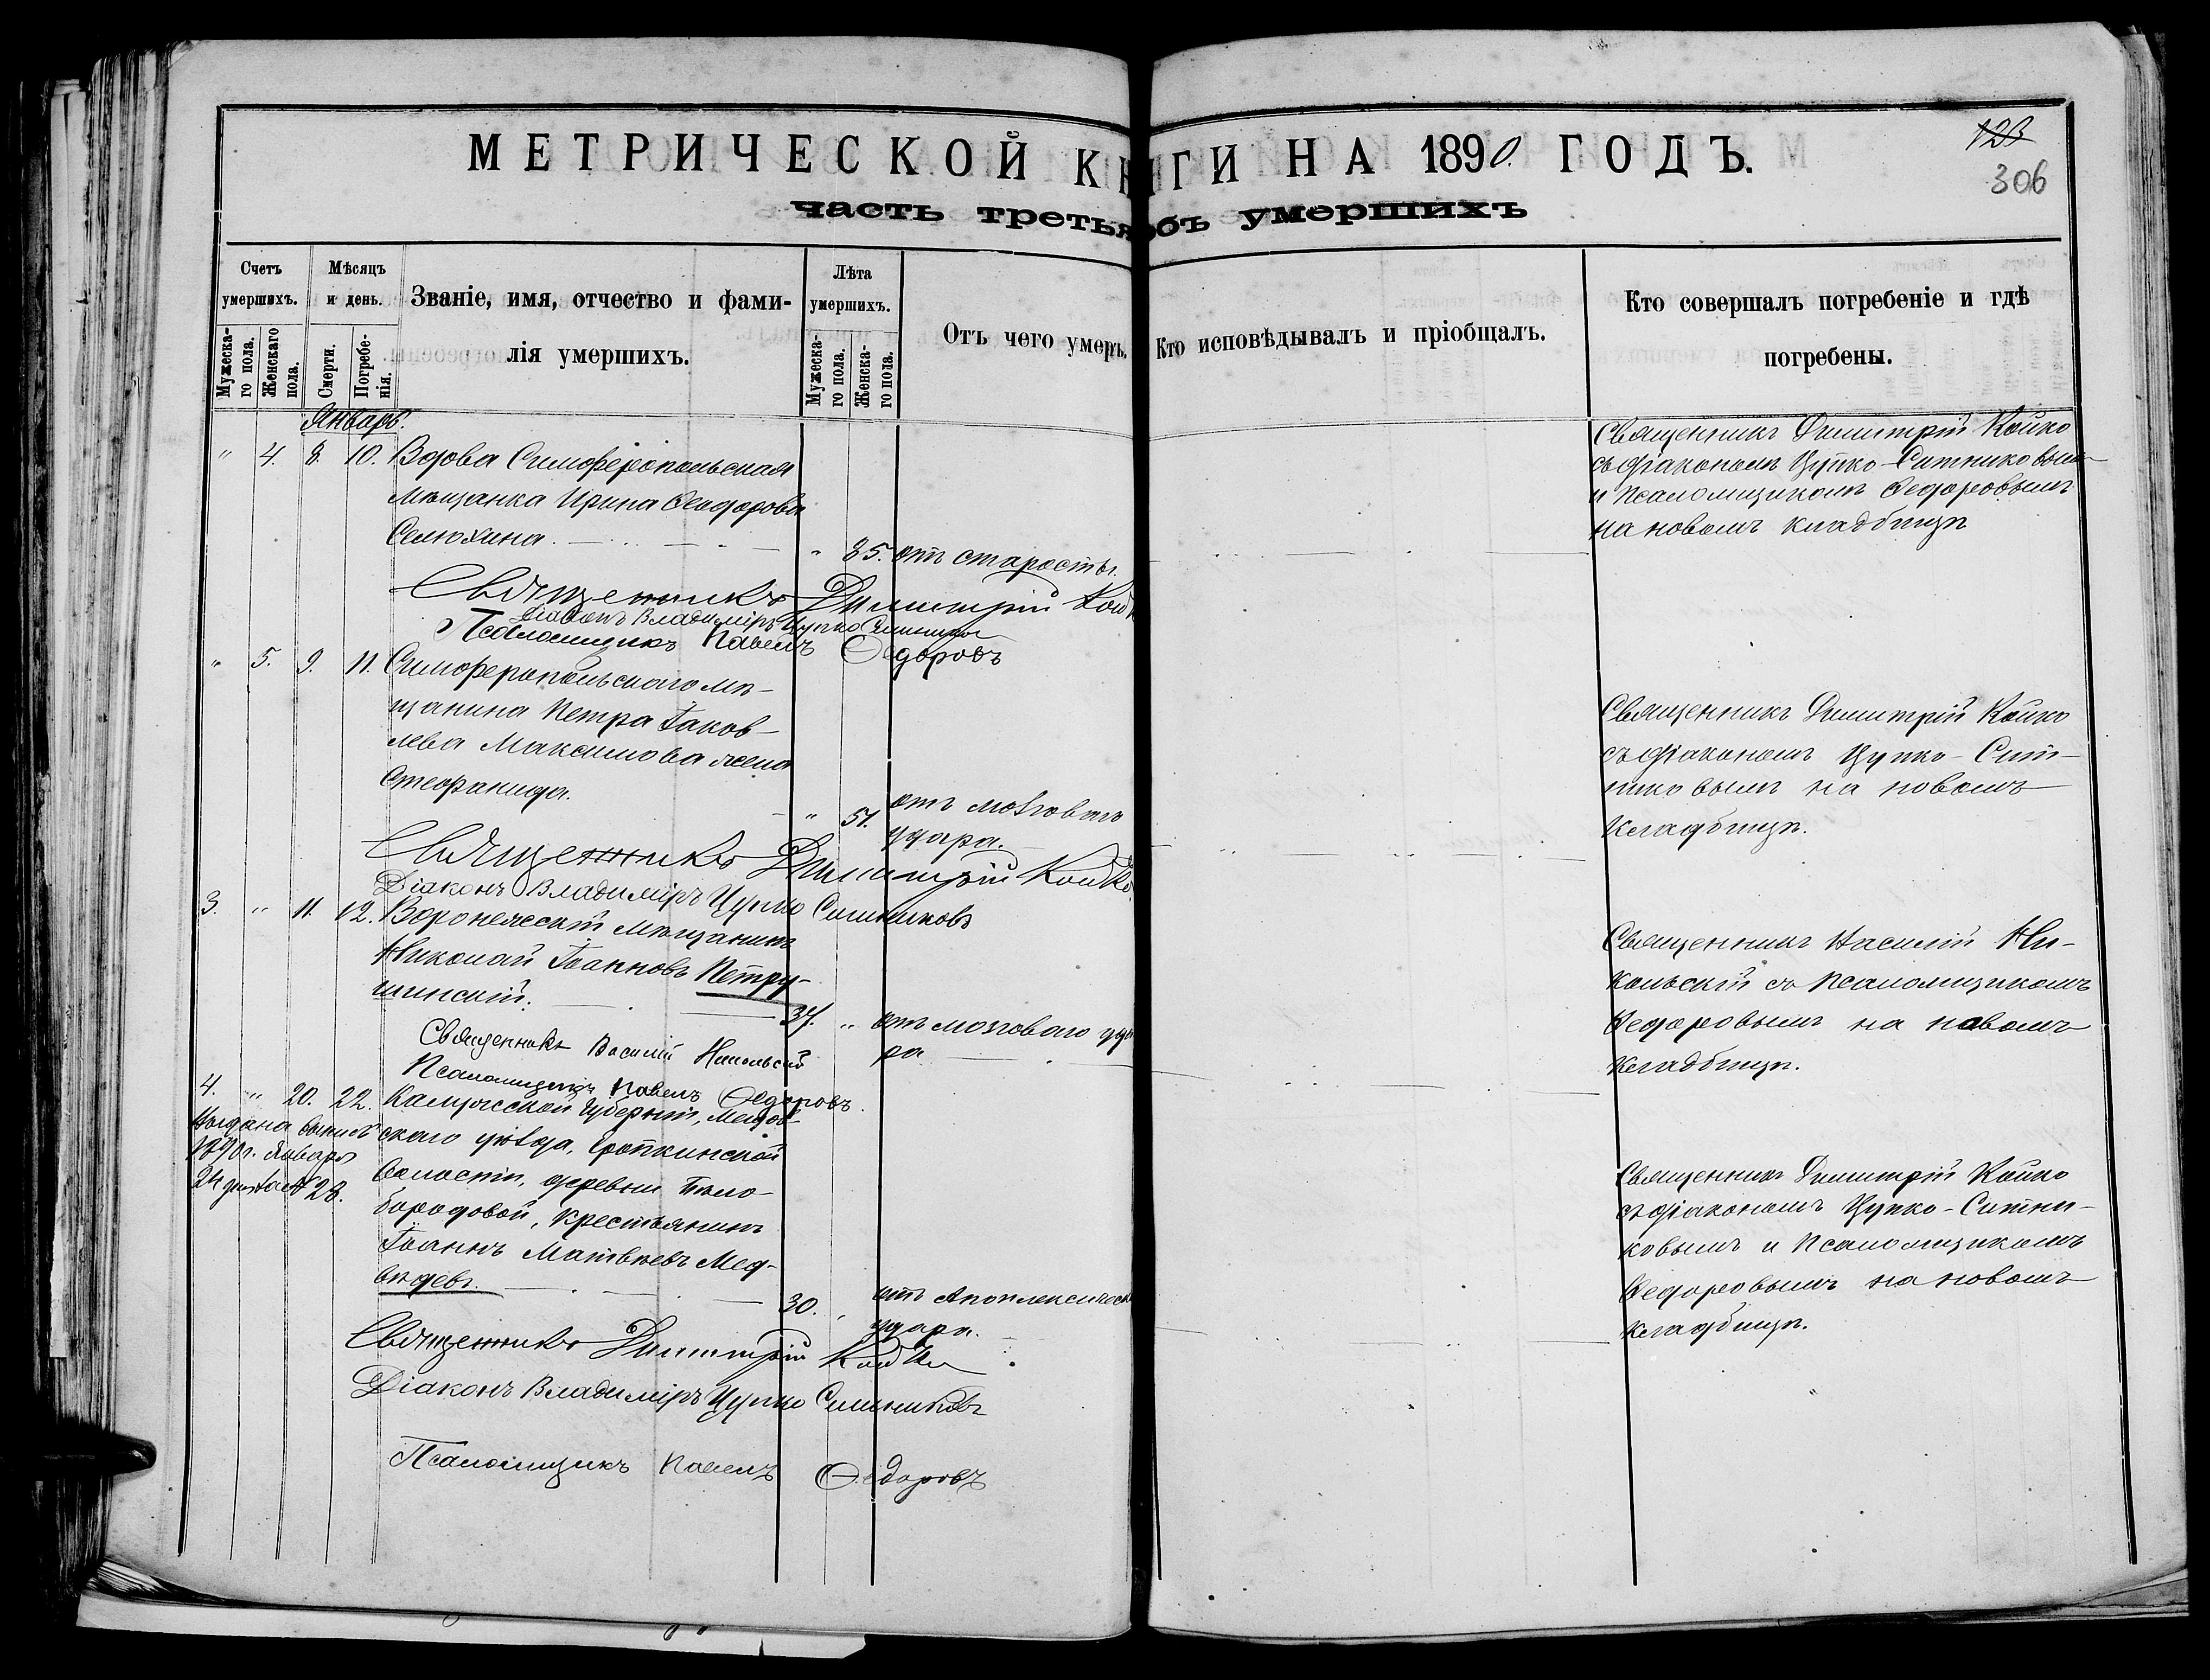 МЕТРИЧЕСКОЙ КНИГИ НА 1890. ГОДЪ.
123
306
часть третья объ умершихъ
Счетъ умершихъ.
Мужеска-го пола.
Женскаго пола.
Мѣсяцъ и день.
Смерти.
Погребе-нія.
Званіе, имя, отчество и фами-
лія умершихъ.
Лѣта умершихъ.
Мужеска-го пола.
Женска-го пола.
Отъ чего умеръ.
Кто исповѣдывалъ и пріобщалъ.
Кто совершалъ погребеніе и гдѣ
погребены.
Январь.
" 4. 8. 10. Вдова Симферопольская
мѣщанка Ирина Ѳеодорова
Селюхина. " 85. отъ старости.
Священникъ Димитрій Койко
съ діакономъ Цупко-Ситниковымъ
и Псаломщикомъ Ѳедоровымъ
на новомъ кладбищѣ
Священникъ Димитрій Койко
Діаконъ Владиміръ Цупко Ситников
Псаломщикъ Павелъ Ѳедоровъ
" 5. 9. 11. Симферопольскаго мѣ-
щанина Петра Іаков-
лева Максимова жена
Стефанида. " 51. отъ мозговаго
удара.
Священникъ Димитрій Койко
съ діакономъ Цупко-Сит-
никовымъ на новомъ
кладбищѣ.
Священникъ Димитрій Койко
Діаконъ Владиміръ Цупко Ситниковъ
3. " 11. 12. Воронежскій мѣщанинъ
Николай Іоанновъ Петру-
шинскій. 37. " отъ мозговаго уда
ра
Священникъ Василій Ни-
кольскій съ Псаломщикомъ
Ѳедоровымъ на новомъ
кладбищѣ.
Священникъ Василій Никольскій
Псаломщикъ Павелъ Ѳедоровъ.
4. " 20. 22. Калужской Губерніи, Медов-
скаго уѣзда, волости, деревни Бѣло-
бородовой, крестьянинъ
Іоаннъ Матвѣевъ Мед-
вѣдевъ. 30. " отъ Апоплексическ
удара.
1890 г. Января
24 дня за № 28.
Священникъ Димитрій Койко
съ діакономъ Цупко-Ситни-
ковымъ и Псаломщикомъ
Ѳедоровымъ на новомъ
кладбищѣ.
Священникъ Димитрій Койко
Діаконъ Владиміръ Цупко Ситниковъ
Псаломщикъ Павелъ Ѳедоровъ